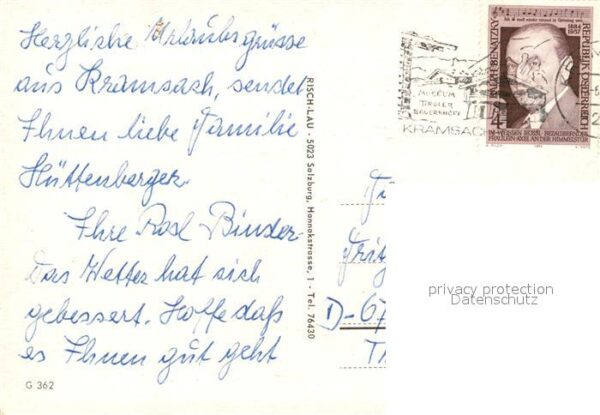 Herzliche Urlaubsgrüsse
aus Kramsach, sendet
Ihnen liebe Familie
Hüttenberger
Ihre Rosl Binder-
Das Wetter hat sich
gebessert. Hoffe daß
es Ihnen gut geht
G 362
RISCH-LAU · 5023 Salzburg, Hannakstrasse, 1 - Tel. 76430
MUSEUM
TIROLER
BAUERNHÖFE
KRAMSACH
1884
1957
RALPH BENATZKY
REPUBLIK ÖSTERREICH
4
IM WEISSEN RÖSSL · BEZAUBERNDES
FRÄULEIN · AXEL AN DER HIMMELSTÜR
Fritz
D-67
privacy protection
Datenschutz